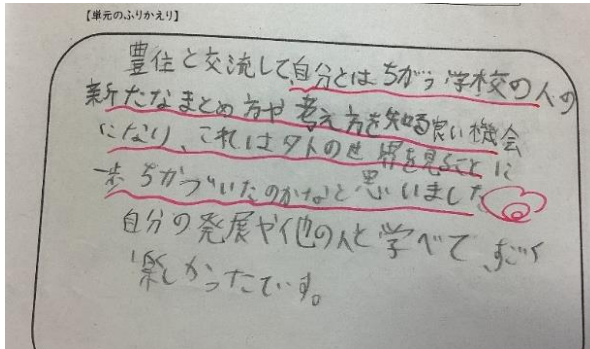 【単元のふりかえり】
豊住と交流して、自分とはちがう学校の人の
新たなまとめ方や考え方を知る良い機会
になり、これは外の世界を見ることに
一歩ちかづいたのかなと思いました。
自分の発展や他の人と学べて、すごく
楽しかったです。